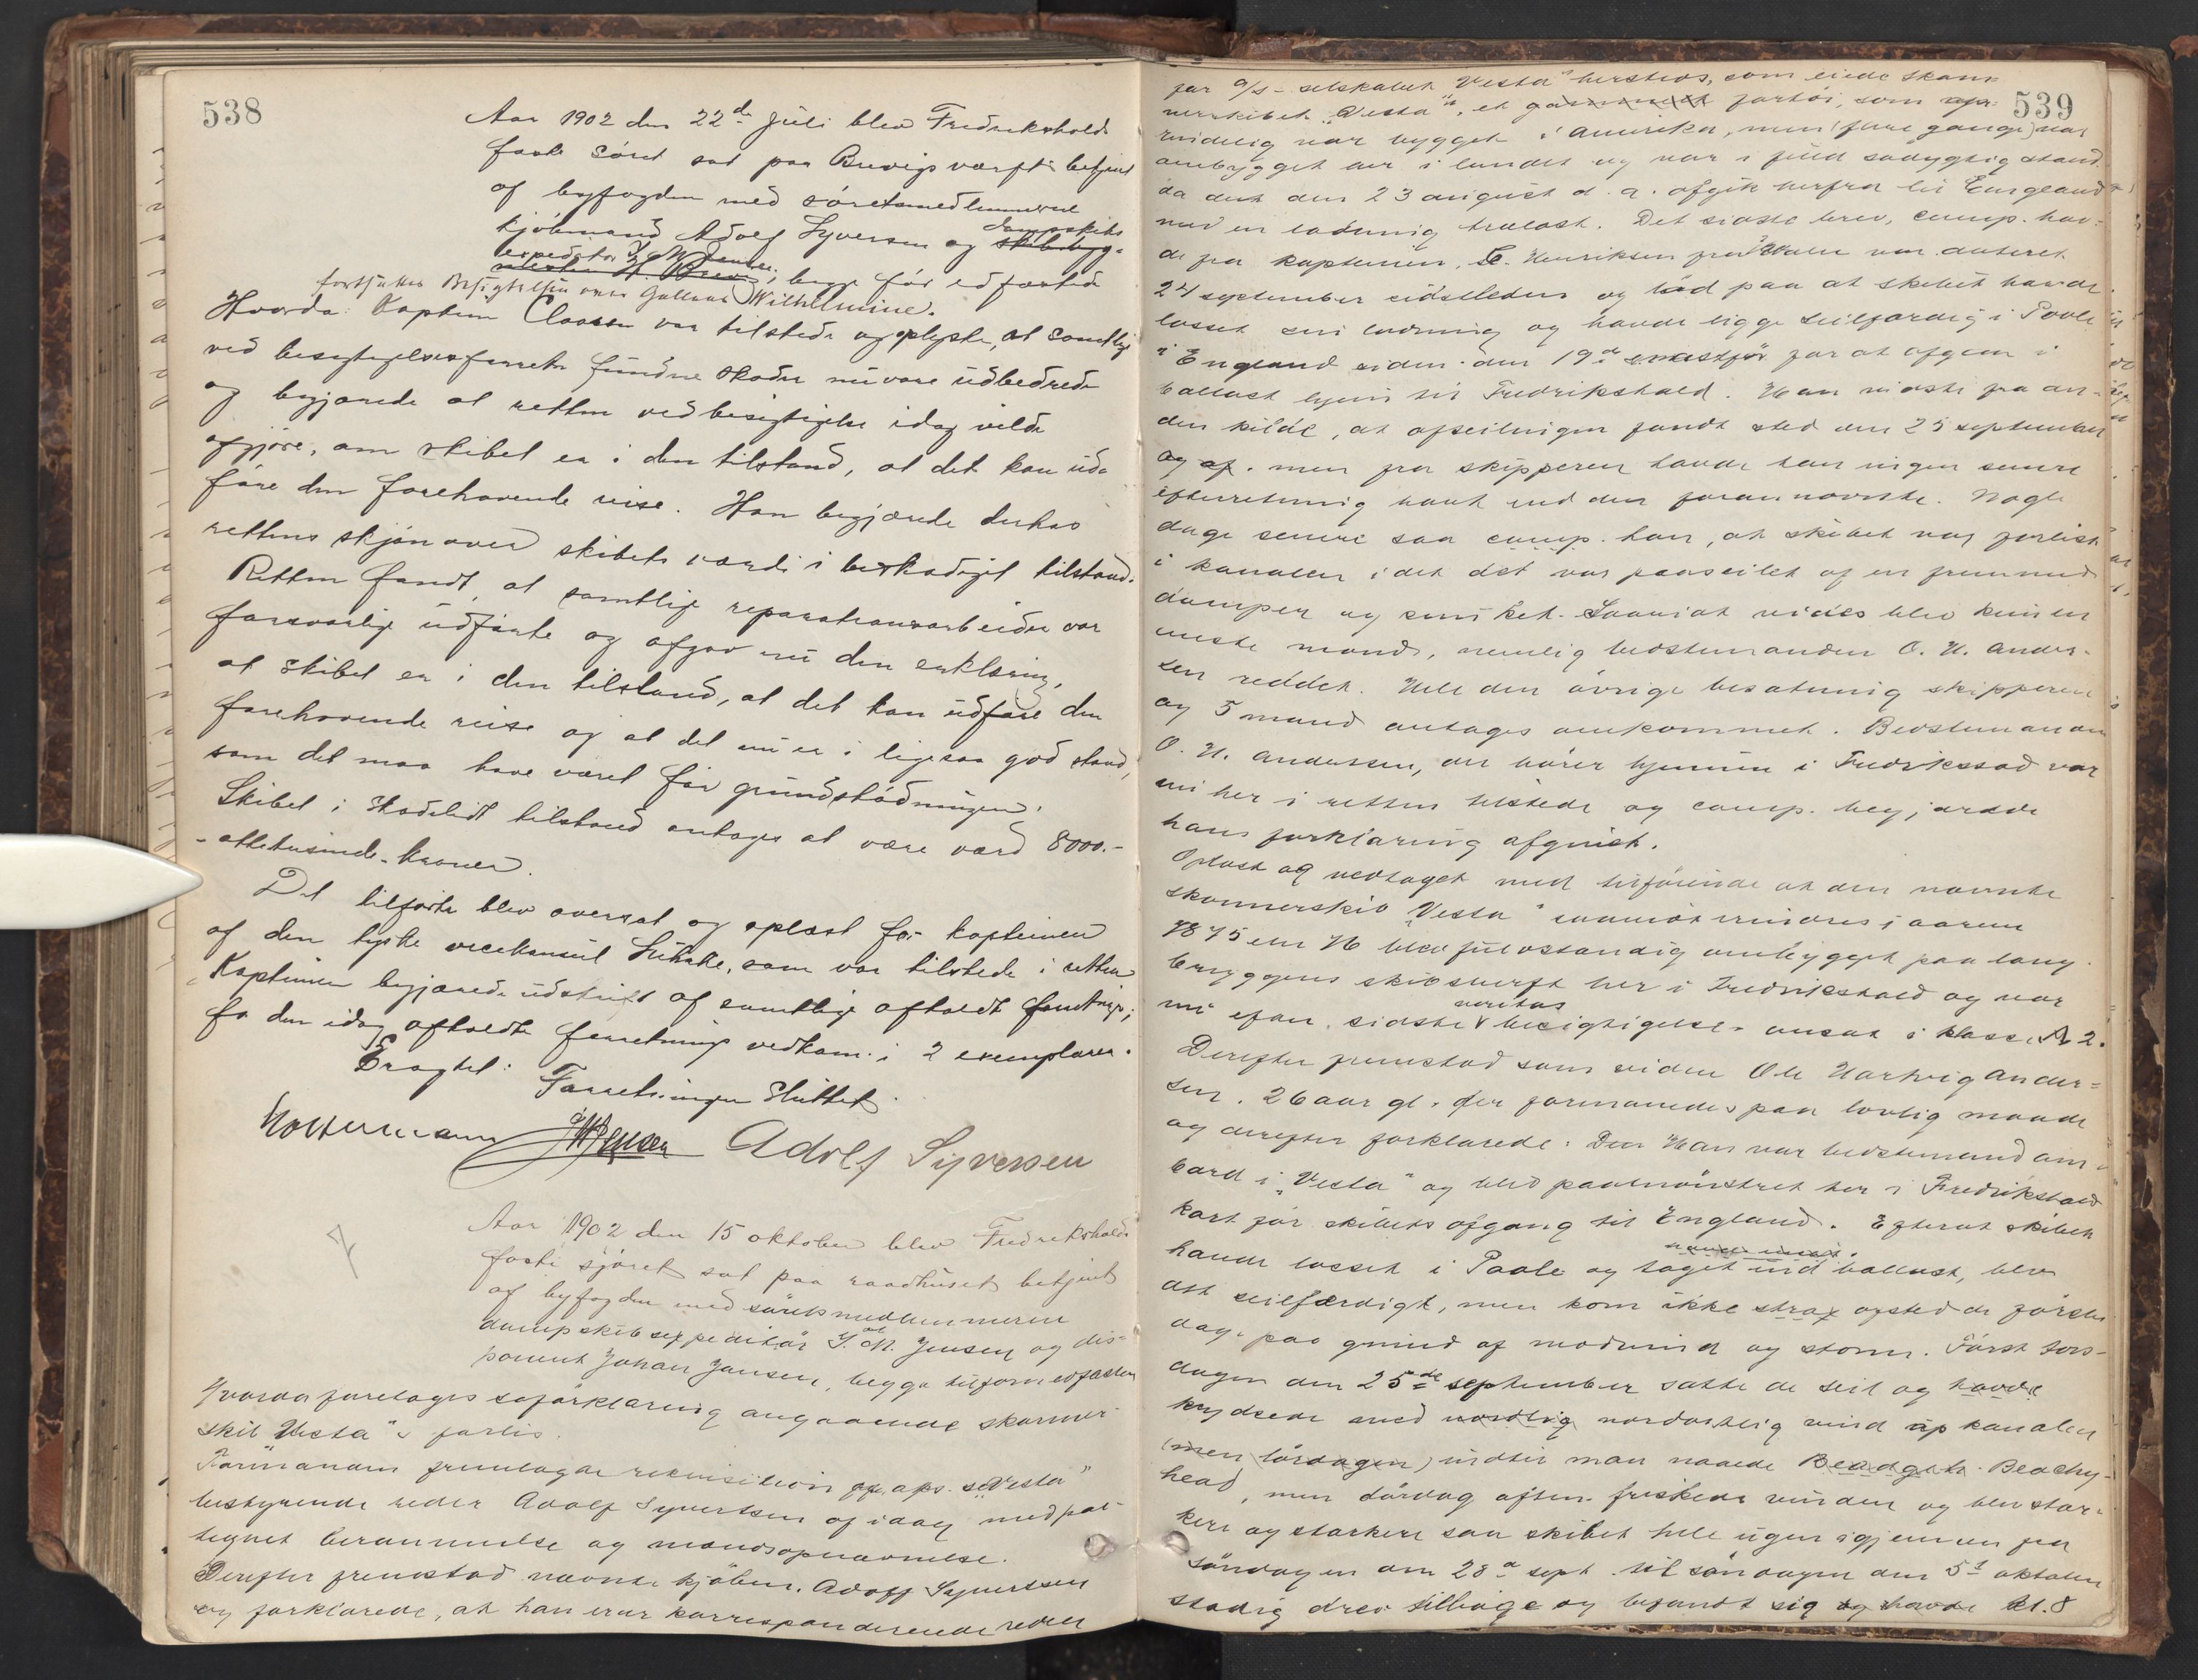 538
Aar 1902 den 22de Juli blev Fredrikshalds
faste søret sat paa Brevigs værft betjent
af byfogden med søretsmedlemmerne
kjøbmand Adolf Syversen og skibsbyg- dampskibs
expeditør J. M. Jensen, begge før edfæstede
fortsattes Besigtelsen over Galleas Wilhelmine.
Hvorda: Kaptein Classen var tilstede og oplyste, at samtlige
ved besigtigelsesforretn fundne skader nu vare udbedrede
og begjærede at retten ved besigtigelse idag vilde
afgjøre, om skibet er i den tilstand, at det kan ud-
føre den forehavende reise. Han begjærede derhos
rettens skjøn over skibets værdi i beskadiget tilstand.
Retten fandt, at samtlige reparationsarbeider var
forsvarlig udførte og afgav nu den erklæring,
at skibet er i den tilstand, at det kan udføre den
forehavende reise og at det nu er i ligesaa god stand,
som det maa have været før grundstødningen.
Skibet i skadelidt tilstand antages at være værd 8000.-
- ottetusinde - kroner.
Det tilførte blev oversat og oplæst for kapteinen
af den tyske vicekonsul, som var tilstede i retten
Kapteinen begjærede udskrift af samtlige afholdt forretnings;
for den idag afholdte forretnings vedkom. i 2 exemplarer.
Fragtet:
Forretningen sluttet.
JMJensen Adolf Syversen
Aar 1902 den 15 oktober blev Fredrikshalds
faste sjøret sat paa raadhuset betjent
af byfogden med søretsmedlemmerne
dampskibsexpeditør J. M. Jensen og dis-
ponent Johan Jansen, begge tilforn edfæstede
Hvorda foretages søforklaring angaaende skonner-
skib "Vesta"s forlis.
Formanden fremlagde rekvisition fra aps. s "Vesta"
bestyrende reder Adolf Syvertsen af idag med paa-
tegnet berammelse og mandsopnævnelse.
Derefter fremstod nævnte kjøbm. Adolf Syvertsen
og forklarede, at han er korresponderende reder
539
for a/s - selskabet "Vesta" hersteds, som eiede skon-
nerskibet "Vesta", et gammelt fartøi, som op-
rindelig var bygget i Amerika, men (flere gange) var
ombygget her i landet og var i fuld sødygtig stand
da det den 23 august d. a. afgik herfra til England
med en ladning trælast. Det sidste brev, comp. hav-
de fra kapteinen, Henriksen fra Hvaler var dateret
24 september sidstleden og lød paa at skibet havde
losset sin ladning og havde ligge seilfærdig i Poole
i England siden den 19de for at afgaa i
ballast hjem til Fredrikshald. Han vidste fra an-
den kilde, at afseilingen fandt sted den 25 september
og af. men fra skipperen havde han ingen senere
efterretning havt end den forannævnte. Nogle
dage senere saa comp. han, at skibet var forlist
i kanalen idet det var paaseilet af en fremmed
damper og sunket. Saavidt vides blev kun en
eneste mand, nemlig bedstemanden O. H. Ander-
sen reddet. Hele den øvrige besætning skipperen
og 5 mand antages omkommet. Bedstemanden
O. H. Andersen, der hører hjemme i Fredriksstad var
nu her i retten tilstede og comp. begjærede
hans forklaring afgivet.
Oplæst og vedtaget med tilføiende at den nævnte
skonnerskib "Vesta" saavidt erindres i aarene
1875 eller 76 blev fuldstændig ombygget paa lang
bryggens skibsværft her i Fredrikshald og var
nu efter sidste veritas besigtigelse ansat i klasse A 2.
Derefter fremstod som vidne Ole Hartvig Ander-
sen. 26 aar gl. der formanedes paa lovlig maade
og derefter forklarede: Den Han var bedstemand om-
bord i "Vesta" og blev paamønstret her i Fredrikshald
kort før skibets afgang til England. Efterat skibet
havde losset i Poole og taget ind ballast, blev
det seilfærdigt, men kom ikke strax afsted de første
dage paa grund af modvind og storm. Først tors-
dagen den 25de september satte de seil og havde
krydsede med nordlig nordostlig vind op kanalen
(men lørdagen) indtil man naaede Beachy-
head, men lørdag aften friskede vinden og blev stær-
kere og stærkere saa skibet hele ugen igjennem fra
søndagen den 28de sept til søndagen den 5te oktober
stadig drev tilbage og befandt sig og havde kl. 8